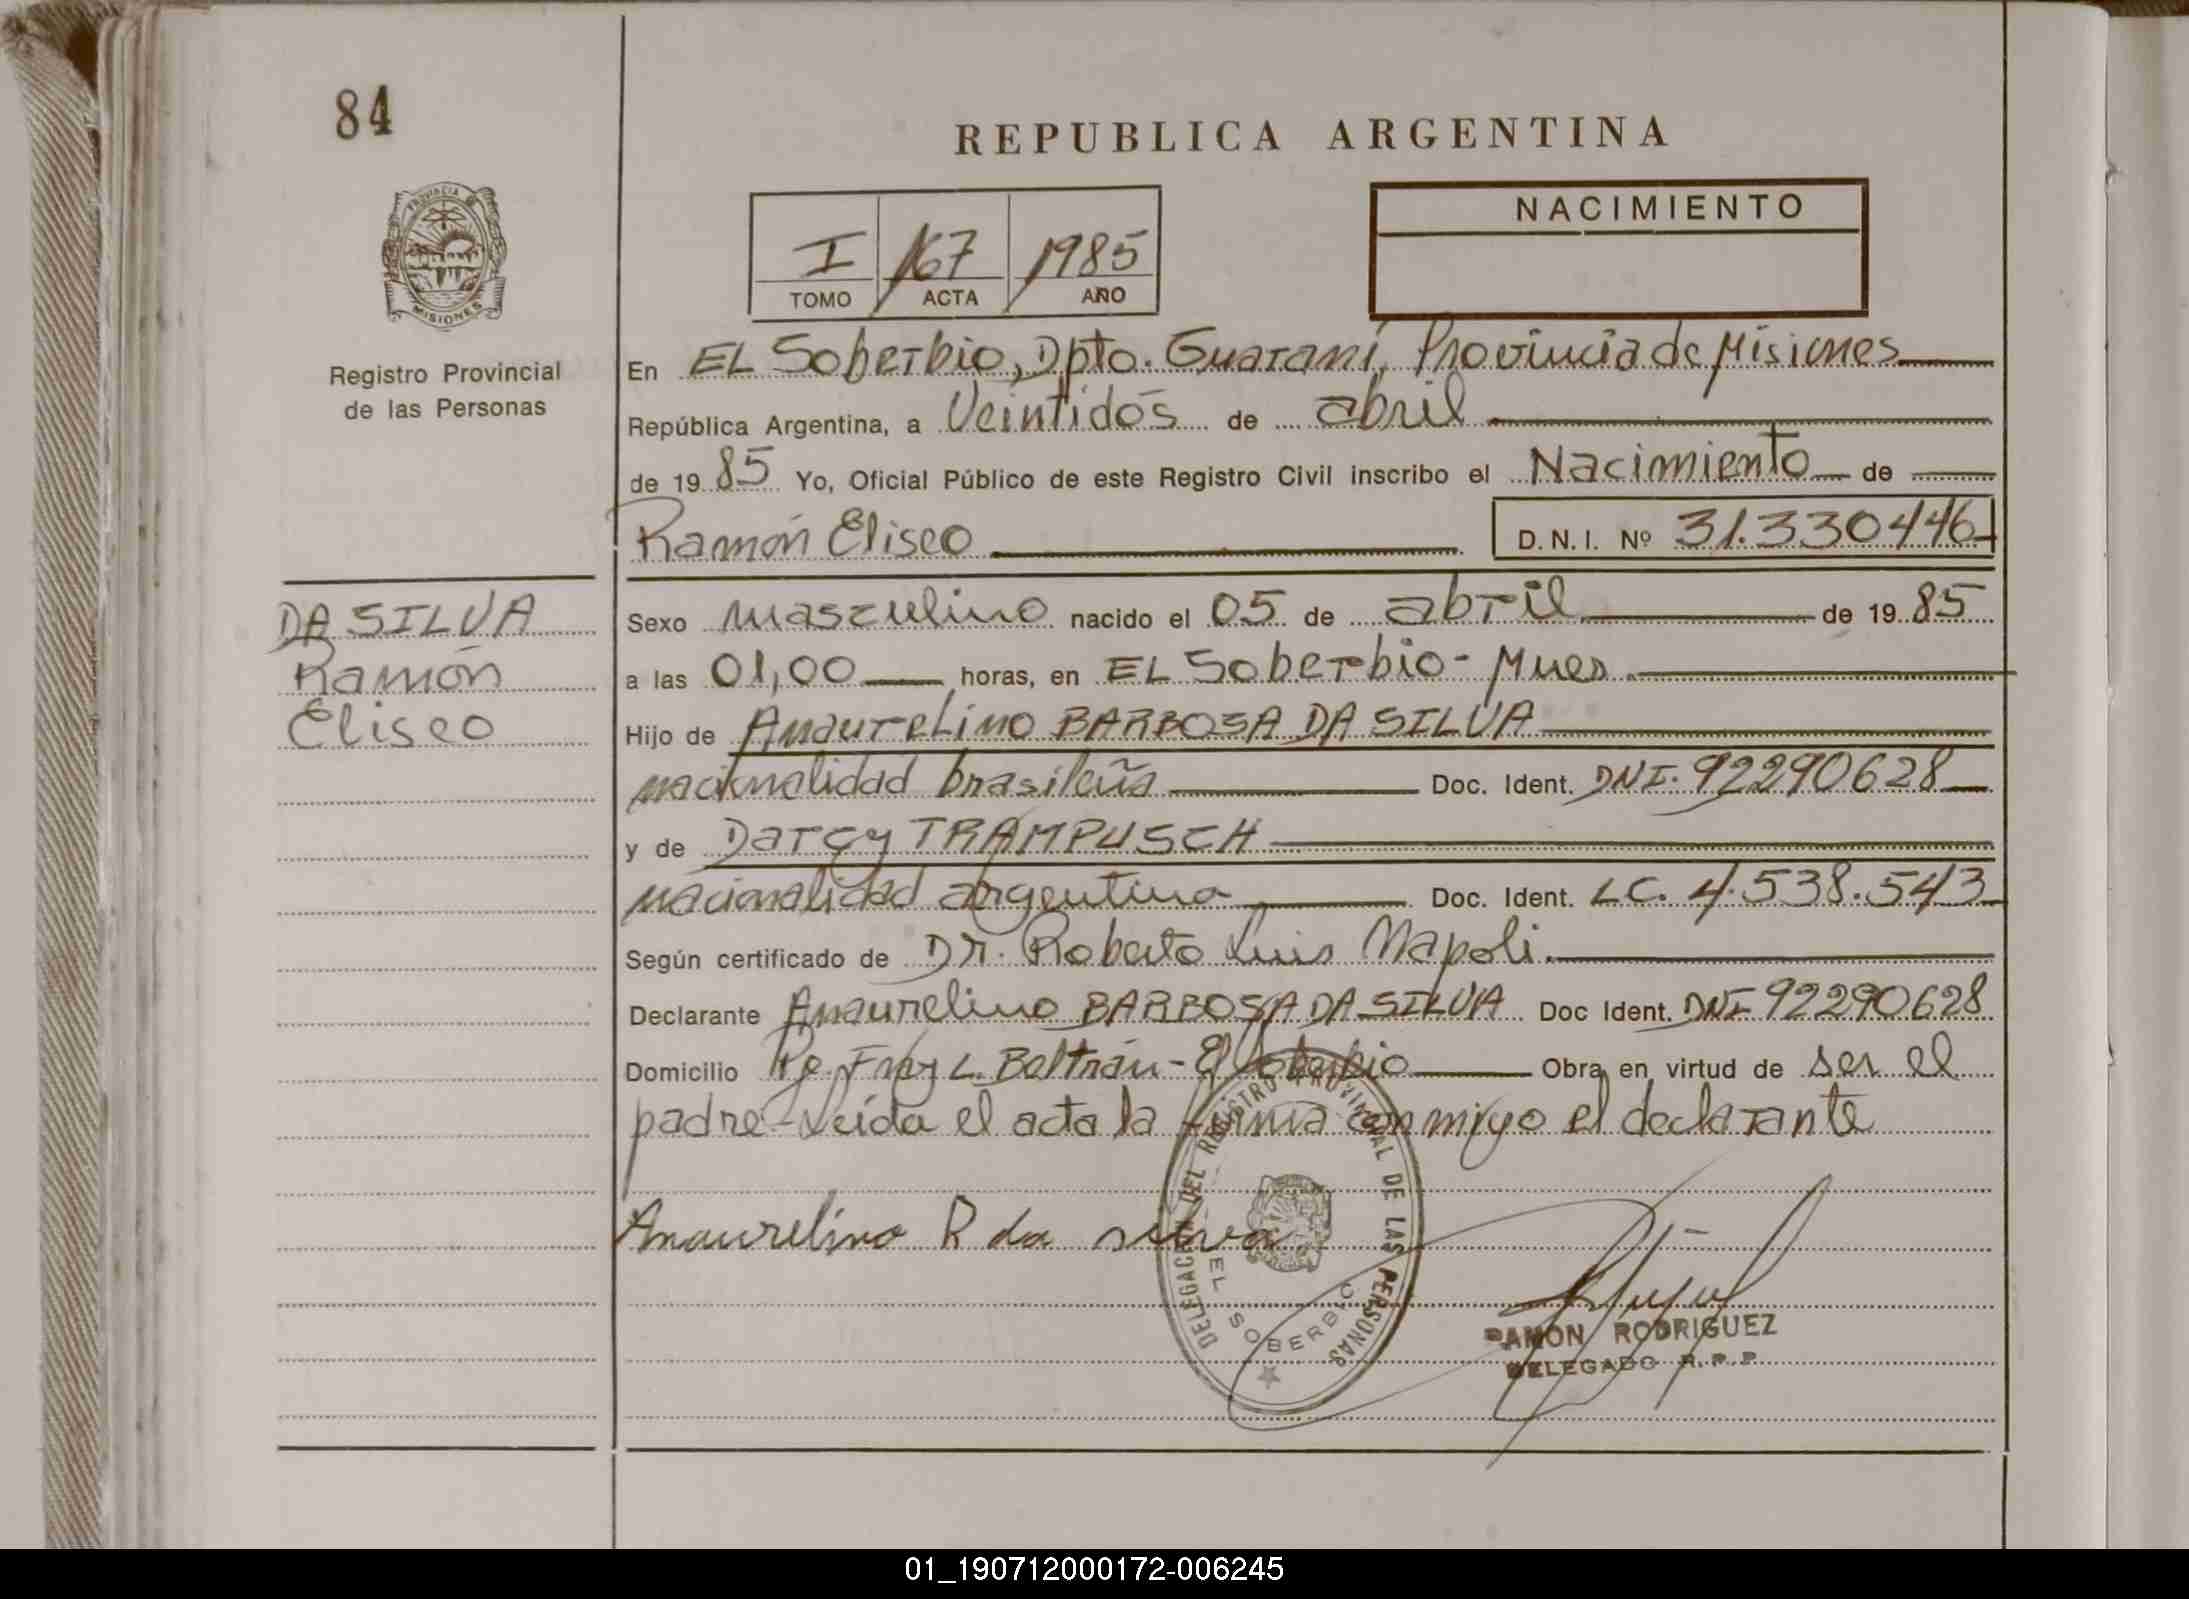 84
REPUBLICA ARGENTINA
PROVINCIA
MISIONES
Registro Provincial
de las Personas
I 167 1985
TOMO ACTA AÑO
NACIMIENTO
En EL Soberbio, Dpto. Guaraní, Provincia de Misiones
República Argentina, a Veintidós de abril
de 1985 Yo, Oficial Público de este Registro Civil inscribo el Nacimiento de
Ramón Eliseo D.N.I. Nº 31.330446
DA SILVA
Ramón
Eliseo
Sexo masculino nacido el 05 de abril de 1985
a las 01,00 horas, en EL Soberbio - Mnes.
Hijo de Anaurelino BARBOSA DA SILVA
nacionalidad brasileña Doc. Ident. DNI. 92290628
y de Darcy TRAMPUSCH
nacionalidad argentina Doc. Ident. LC. 4.538.543
Según certificado de Dr. Roberto Luis Napoli.
Declarante Anaurelino BARBOSA DA SILVA Doc Ident. DNI 92290628
Domicilio Pje. Fray L. Beltrán - El Soberbio Obra en virtud de ser el
padre - Leída el acta la firma conmigo el declarante
Anaurelino B da silva
DELEGACION DEL REGISTRO PROVINCIAL DE LAS PERSONAS
EL SOBERBIO
RAMON RODRIGUEZ
DELEGADO R.P.P.
01_190712000172-006245